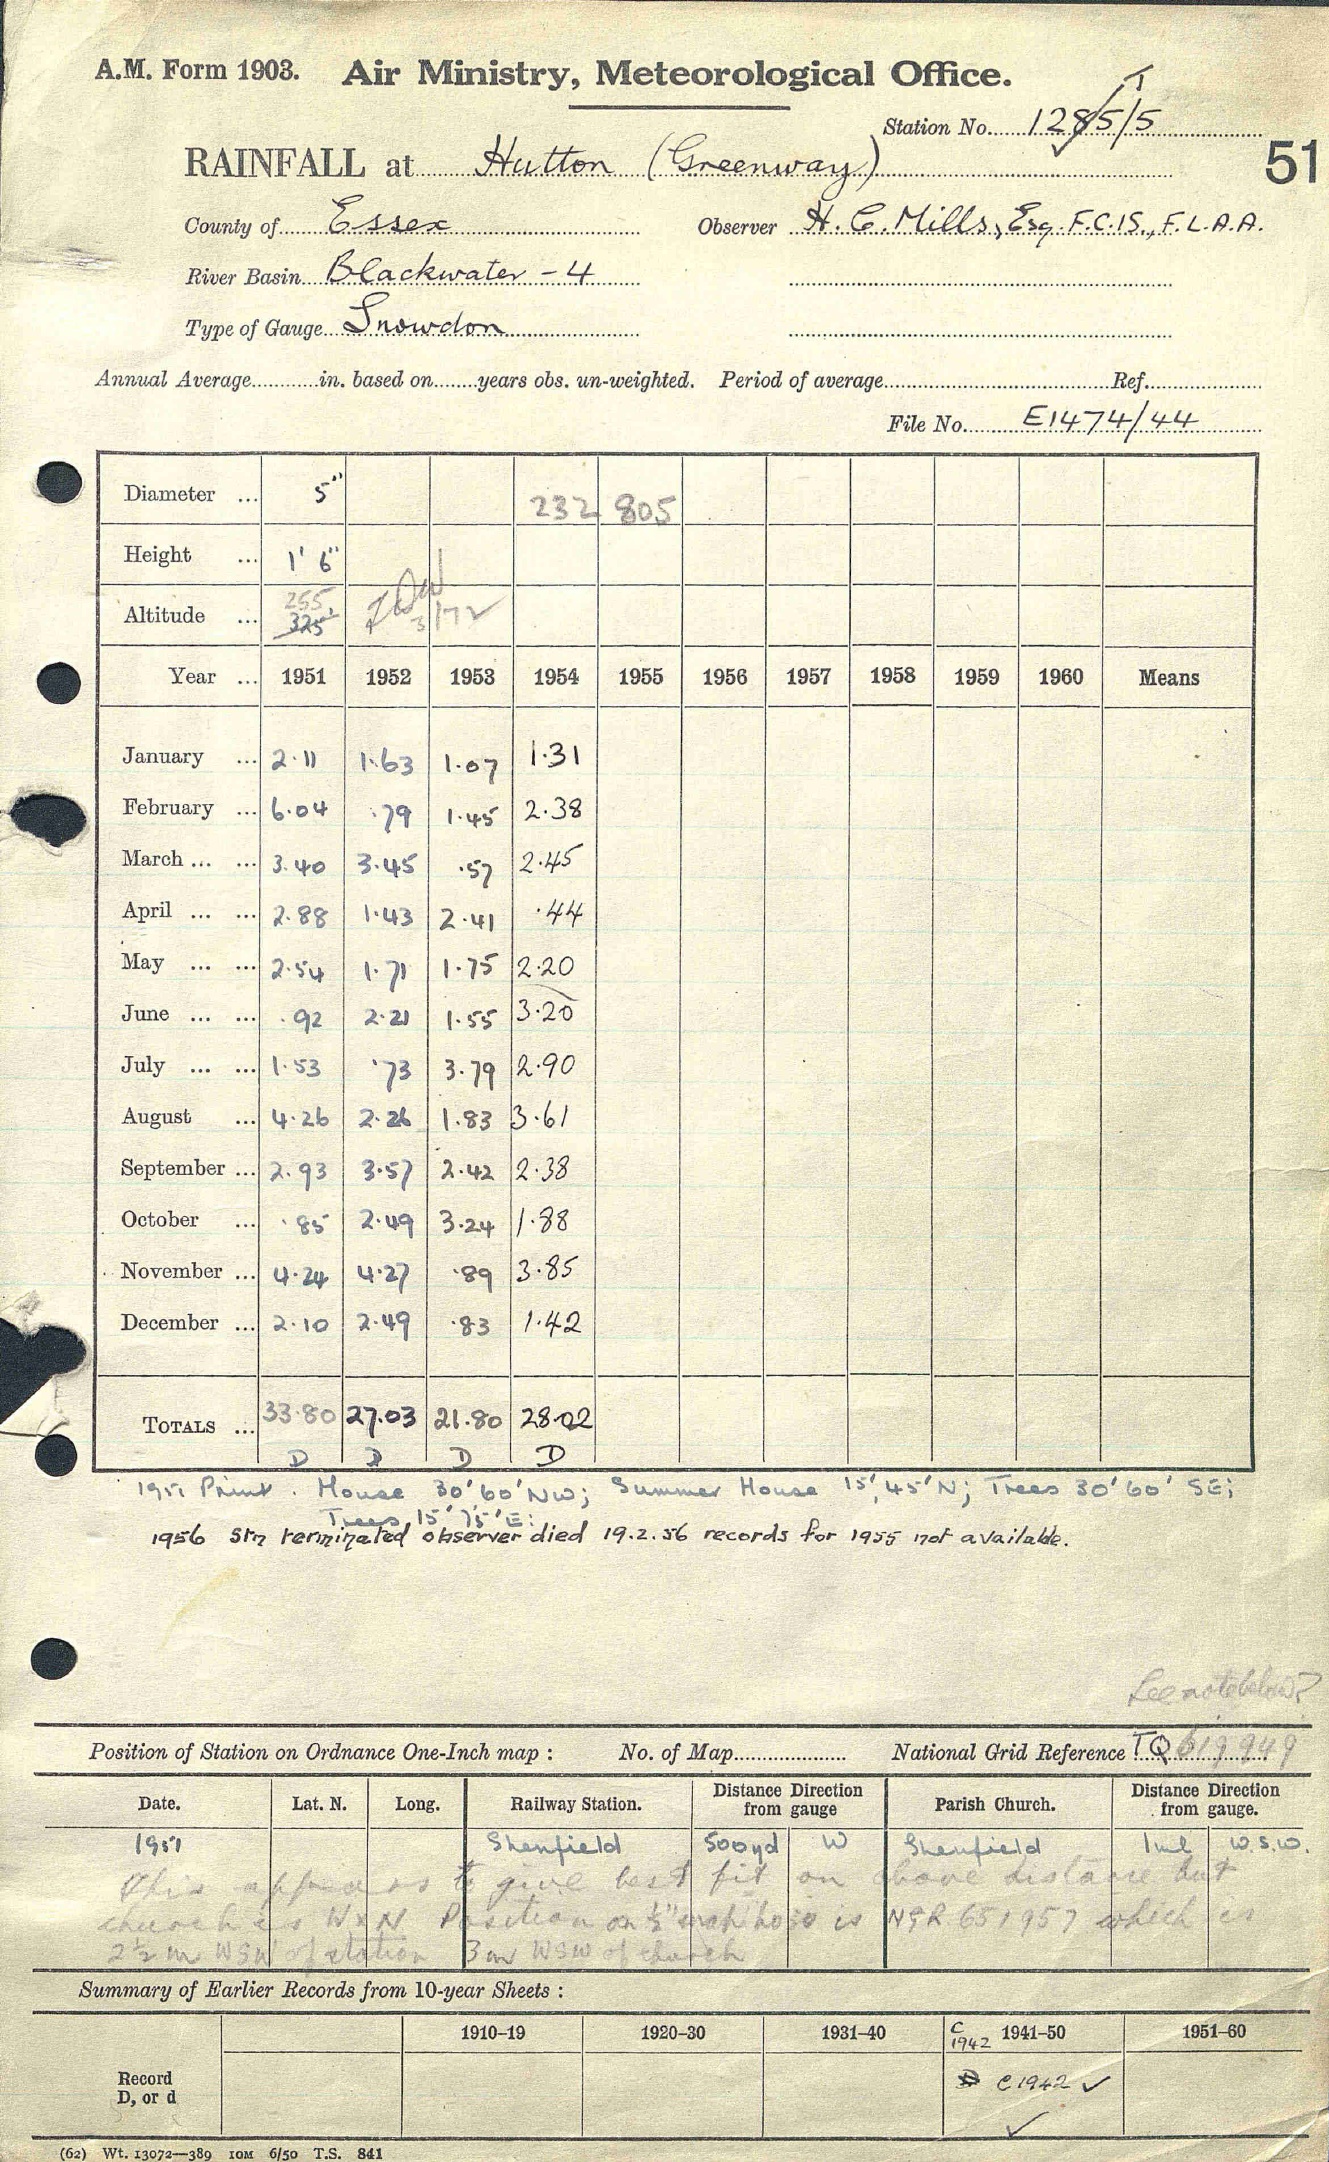 A.M. Form 1903. Air Ministry, Meteorological Office.
T
Station No. 1285/5
51
RAINFALL at Hutton (Greenway)
County of Essex Observer H. C. Mills, Esq. F.C.I.S., F.L.A.A.
River Basin Blackwater - 4
Type of Gauge Snowdon
Annual Average in. based on years obs. un-weighted. Period of average Ref.
File No. E1474/44
Diameter ... 5" 232 805
Height ... 1' 6"
255
Altitude ... 325' 3/72
Year ... 1951 1952 1953 1954 1955 1956 1957 1958 1959 1960 Means
January ... 2.11 1.63 1.07 1.31
February ... 6.04 .79 1.45 2.38
March ... ... 3.40 3.45 .57 2.45
April ... ... 2.88 1.43 2.41 .44
May ... ... 2.54 1.71 1.75 2.20
June ... ... .92 2.21 1.55 3.20
July ... ... 1.53 .73 3.79 2.90
August ... 4.26 2.26 1.83 3.61
September ... 2.93 3.57 2.42 2.38
October ... .85 2.49 3.24 1.88
November ... 4.24 4.27 .89 3.85
December ... 2.10 2.49 .83 1.42
TOTALS ... 33.80 27.03 21.80 28.02
D D D D
1951 Print. House 30' 60' NW; Summer House 15', 45' N; Trees 30' 60' SE;
Trees 15' 75' E:
1956 Stn terminated observer died 19.2.56 records for 1955 not available.
See note below?
Position of Station on Ordnance One-Inch map : No. of Map National Grid Reference TQ 619949
Date. Lat. N. Long. Railway Station. Distance Direction from gauge Parish Church. Distance Direction from gauge.
1951 Shenfield 500yd W Shenfield 1ml W.S.W.
This appears to give best fit on above distance but
church is WxN Position on ½" map is NGR 651957 which is
2½ m WSW of station 3m WSW of church
Summary of Earlier Records from 10-year Sheets :
1910–19 1920–30 1931–40 C 1942 1941–50 1951–60
Record
D, or d D C1942 ✓
✓
(62) Wt. 13072—389 10M 6/50 T.S. 841